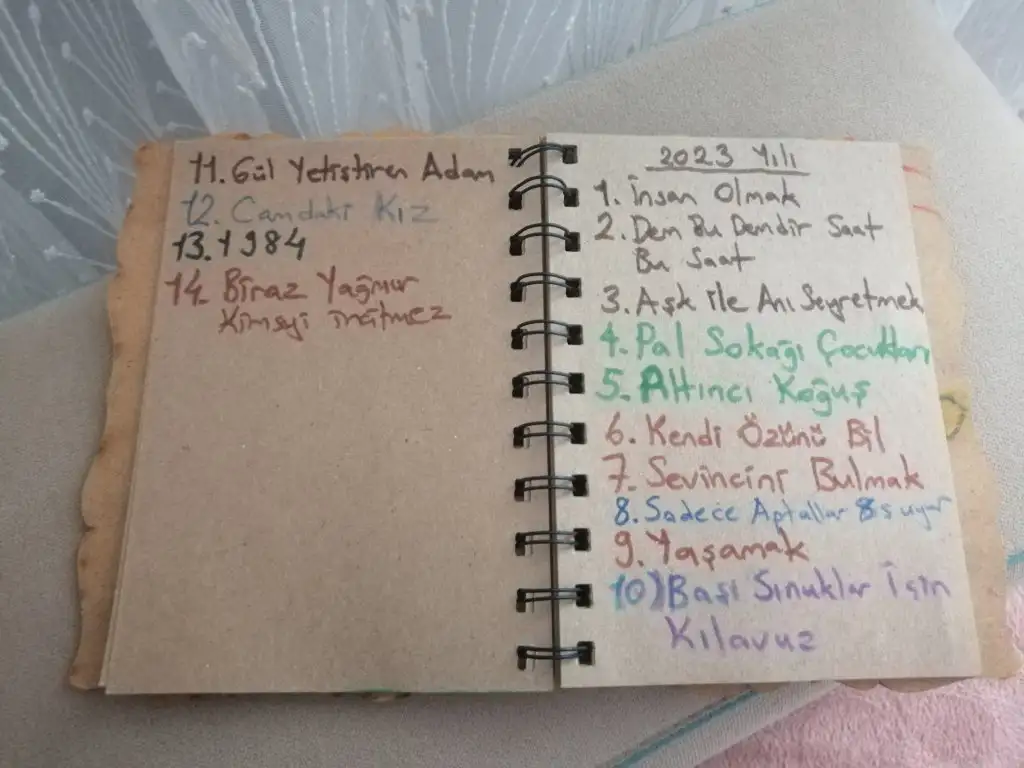 11. Gül Yetiştiren Adam
12. Camdaki Kız
13. 1984
14. Biraz Yağmur
Kimseyi incitmez
2023 Yılı
1. İnsan Olmak
2. Dem Bu Demdir Saat
Bu Saat
3. Aşk ile Anı Seyretmek
4. Pal Sokağı Çocukları
5. Altıncı Koğuş
6. Kendi Özünü Bil
7. Sevincini Bulmak
8. Sadece Aptallar 8s uyur
9. Yaşamak
10) Başı Sınuklar İçin
Kılavuz